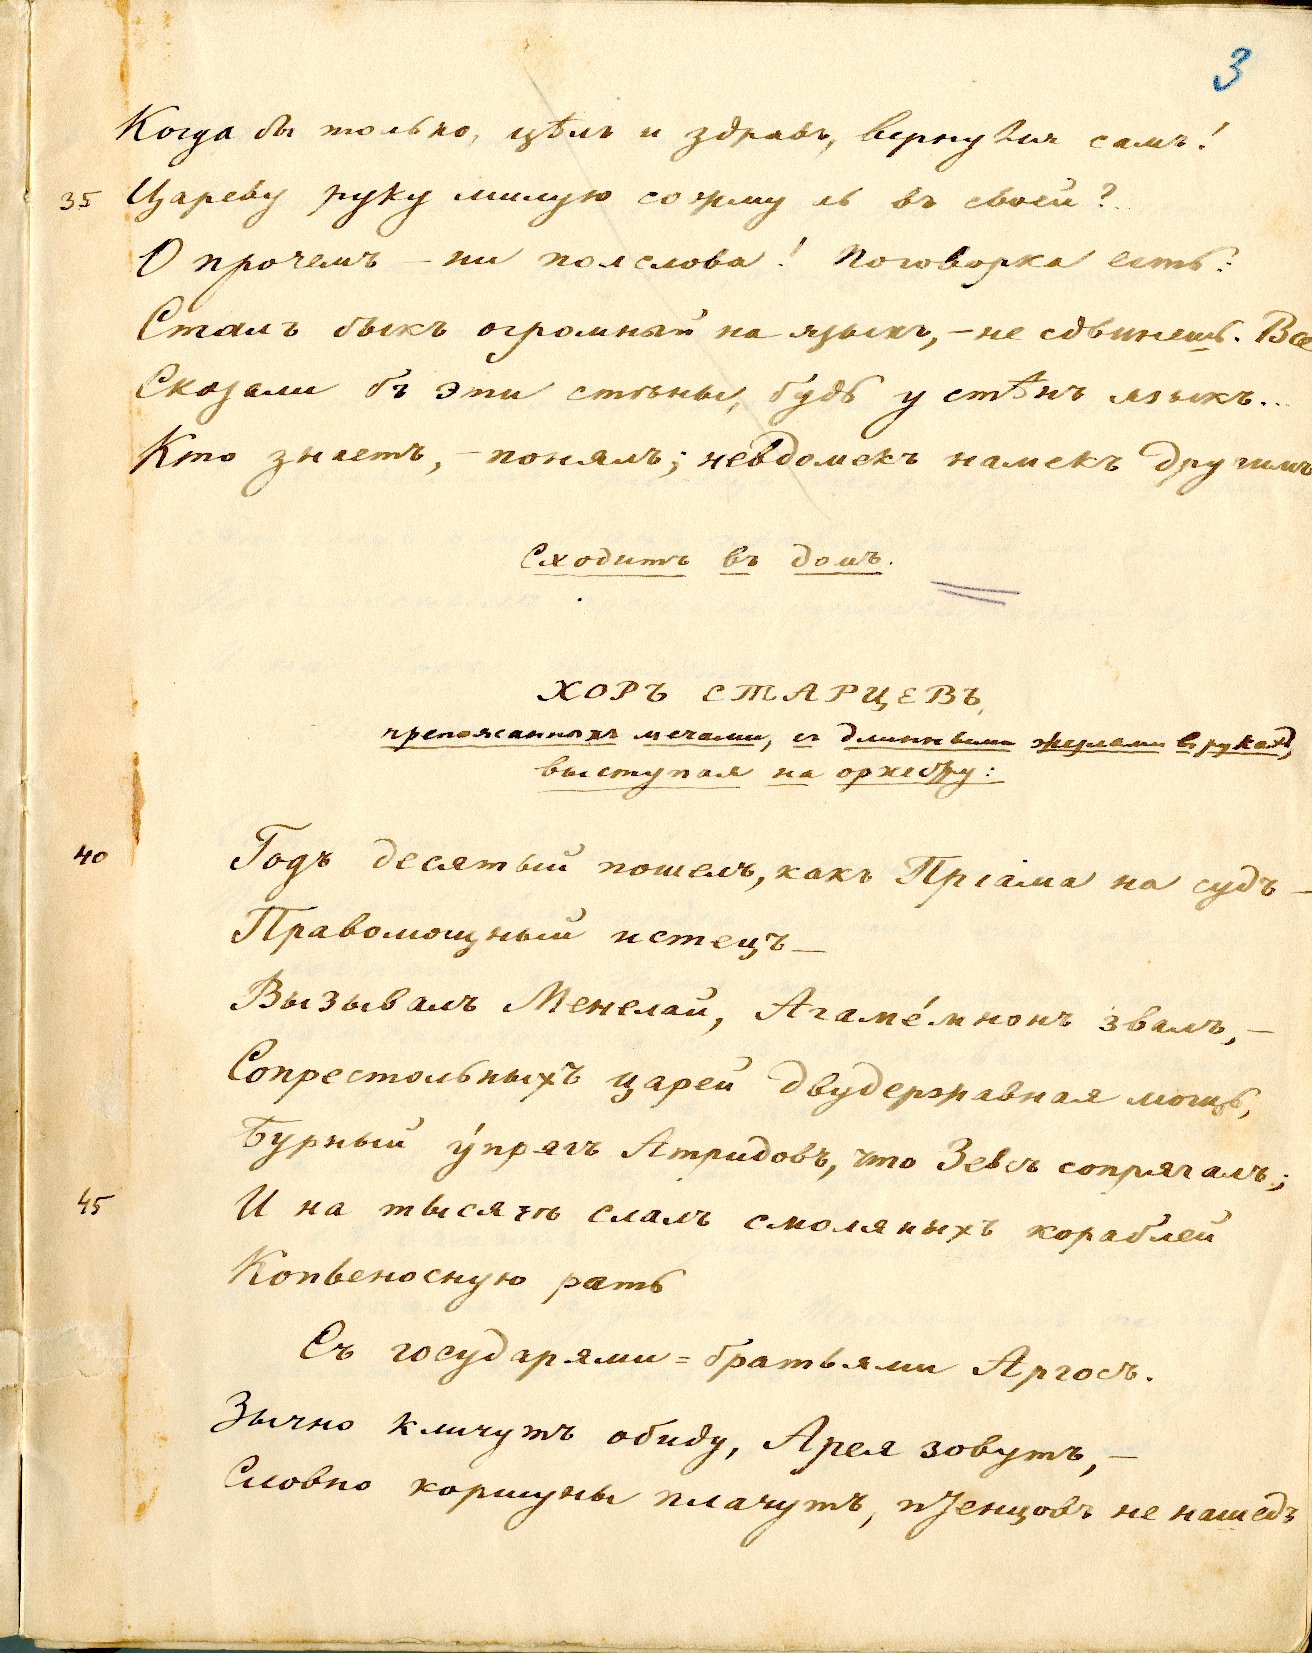 3
Когда бы только, цѣлъ и здравъ, вернулся самъ!
35 Цареву руку милую сожму ль въ своей?
О прочемъ – ни полслова! Поговорка есть:
Сталъ быкъ огромный на языкъ, – не сдвинешь. Все
Сказали бъ эти стѣны, будь у стѣнъ языкъ...
Кто знаетъ, – понялъ; невдомекъ намекъ другимъ
Сходитъ въ домъ.
ХОРЪ СТАРЦЕВЪ,
препоясанныхъ мечами, съ длинными жезлами въ рукахъ,
выступая на орхестру:
40 Годъ десятый пошелъ, какъ Пріама на судъ –
Правомощный истецъ –
Вызывалъ Менелай, Агаме́мнонъ звалъ, –
Сопрестольныхъ царей двудержавная мощь,
Бурный у́пряжъ Атридовъ, что Зевсъ сопрягалъ;
45 И на тысячѣ слалъ смоляныхъ кораблей
Копьеносную рать
Съ государями=братьями Аргосъ.
Зычно кличутъ обиду, Арея зовутъ, –
Словно коршуны плачутъ, птенцовъ не нашедъ